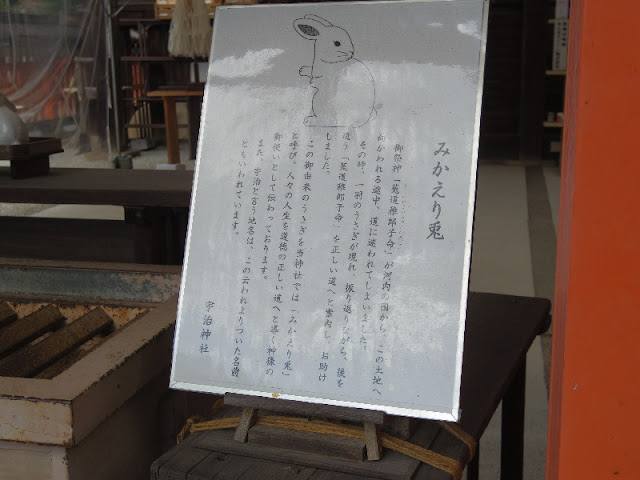 みかえり兎
御祭神「菟道稚郎子命」が河内の国から、この土地へ
向かわれる途中、道に迷われてしまいました。
その時、一羽のうさぎが現れ、振り返りながら、後を
追う「菟道稚郎子命」を正しい道へと案内し、お助け
しました。
この御由来のうさぎを当神社では「みかえり兎」
と呼び、人々の人生を道徳の正しい道へと導く神様の
御使いとして伝わっております。
また、宇治と言う地名は、この云われよりついた名前
ともいわれています。
宇治神社